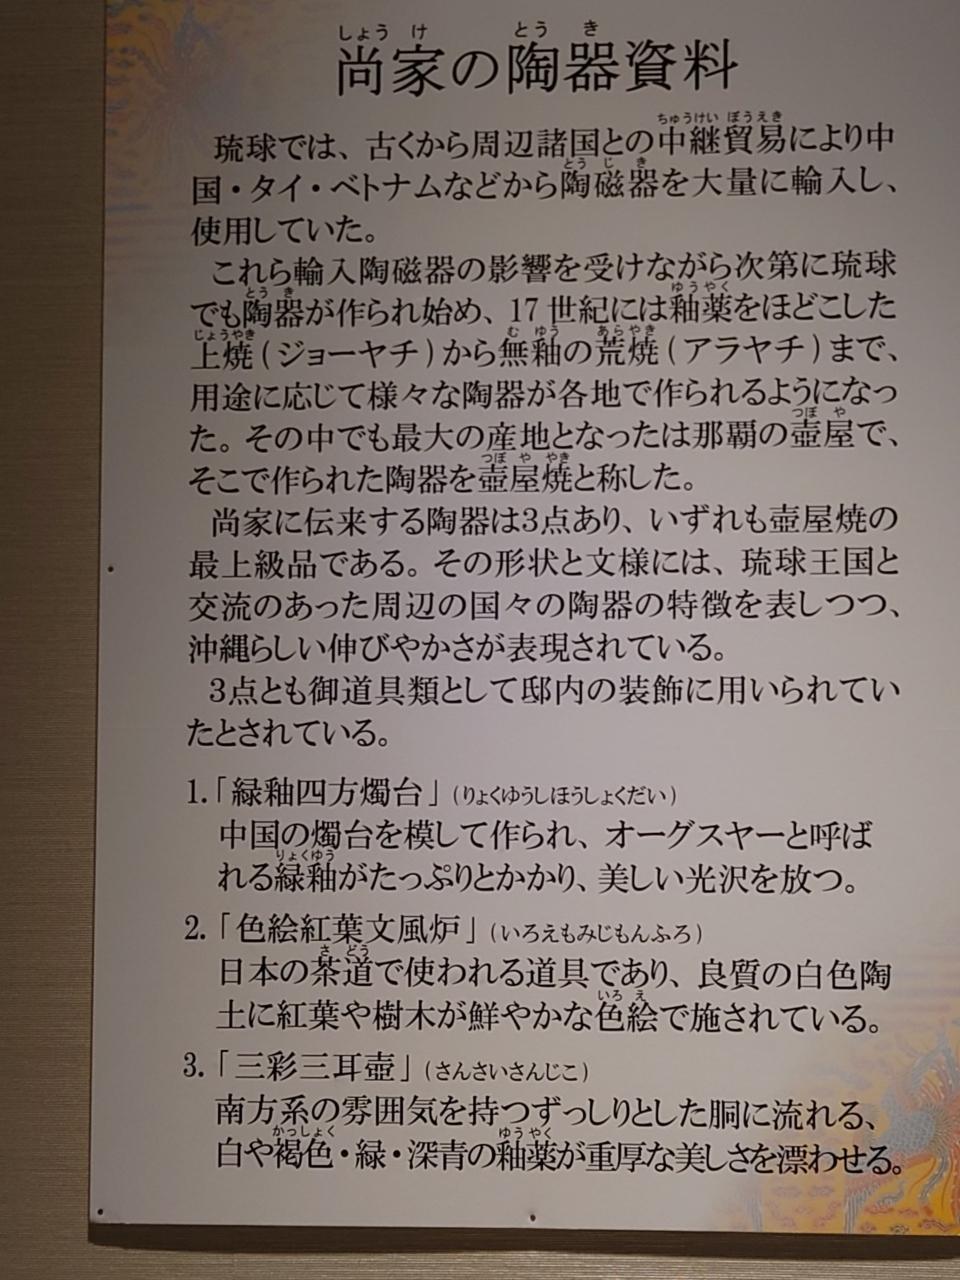 しょうけ　とうき
尚家の陶器資料
ちゅうけいぼうえき
琉球では、古くから周辺諸国との中継貿易により中
とうじき
国・タイ・ベトナムなどから陶磁器を大量に輸入し、
使用していた。
これら輸入陶磁器の影響を受けながら次第に琉球
とうき　ゆうやく
でも陶器が作られ始め、17世紀には釉薬をほどこした
じょうやき　むゆう　あらやき
上焼(ジョーヤチ)から無釉の荒焼(アラヤチ)まで、
用途に応じて様々な陶器が各地で作られるようになっ
つぼや
た。その中でも最大の産地となったは那覇の壺屋で、
つぼややき
そこで作られた陶器を壺屋焼と称した。
尚家に伝来する陶器は3点あり、いずれも壺屋焼の
最上級品である。その形状と文様には、琉球王国と
交流のあった周辺の国々の陶器の特徴を表しつつ、
沖縄らしい伸びやかさが表現されている。
3点とも御道具類として邸内の装飾に用いられてい
たとされている。
1.「緑釉四方燭台」(りょくゆうしほうしょくだい)
中国の燭台を模して作られ、オーグスヤーと呼ば
りょくゆう
れる緑釉がたっぷりとかかり、美しい光沢を放つ。
2.「色絵紅葉文風炉」(いろえもみじもんふろ)
さどう
日本の茶道で使われる道具であり、良質の白色陶
いろえ
土に紅葉や樹木が鮮やかな色絵で施されている。
3.「三彩三耳壺」(さんさいさんじこ)
南方系の雰囲気を持つずっしりとした胴に流れる、
かっしょく　ゆうやく
白や褐色・緑・深青の釉薬が重厚な美しさを漂わせる。